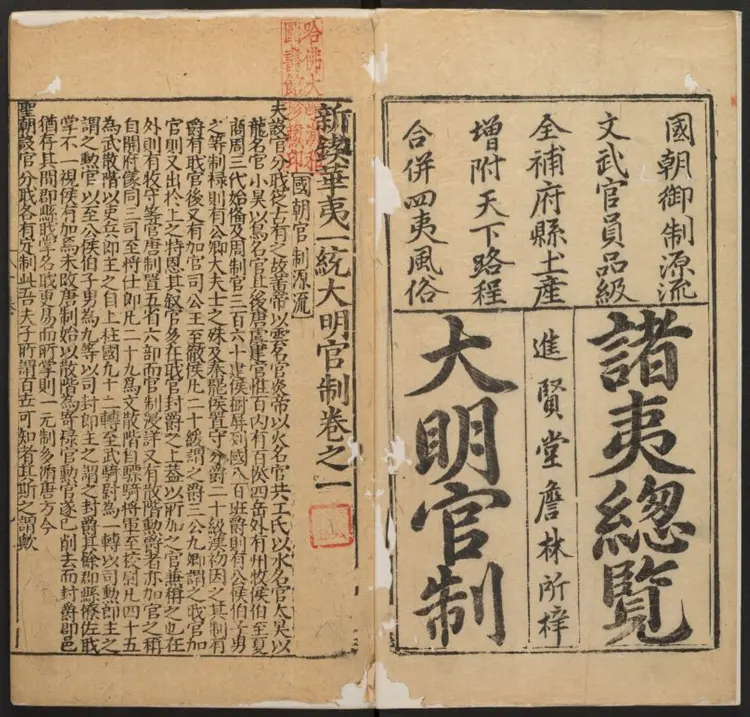 國朝御制源流
文武官員品級
全補府縣土産
增附天下路程
合併四夷風俗
諸夷緫覽
進賢堂詹林所梓
大明官制
哈佛大學漢和
圖書館珍藏印
新鍥華夷一統大明官制卷之一
國朝官制源流
夫設官分職從古有之故黃帝以雲名官炎帝以火名官共工氏以水名官太昊以
龍名官小昊以鳥名官其後唐虞建官惟百内有百揆四岳外有州牧侯伯至夏
商周三代始備及周制官三百六十建侯樹屏列國八百班爵則有公侯伯子男
之等制祿則有公卿大夫士之殊及秦罷侯置守分爵二十級漢初因之其制有
爵有職官後又有加官司公王至散侯凡二十級謂之爵三公九卿謂之職官加
官則又出於上之特恩其叙官多在職官封爵之上蓋以所加之官兼稱之也在
外則有牧守等官唐制置五省六部而官制寖詳又有散階勳爵者亦加官之稱
自開府儀同三司至將仕郎凡二十九為文散階自驃騎將軍至校尉凡四十五
為武散階以吏兵郎主之自上柱國九十二轉至武騎尉為一轉以司勳郎主之
謂之勳官以至公侯伯子男為九等以司封郎主之謂之封爵其餘郡縣僚佐職
掌不一視侯有加焉未改唐制始以散階為寄祿官勳官遂已削去而封爵即邑
猶存其間郡縣職掌名職更易而所掌則一元制多術唐方今
聖朝設官分職各有定制此吾夫子所謂百世可知者其斯之謂歟